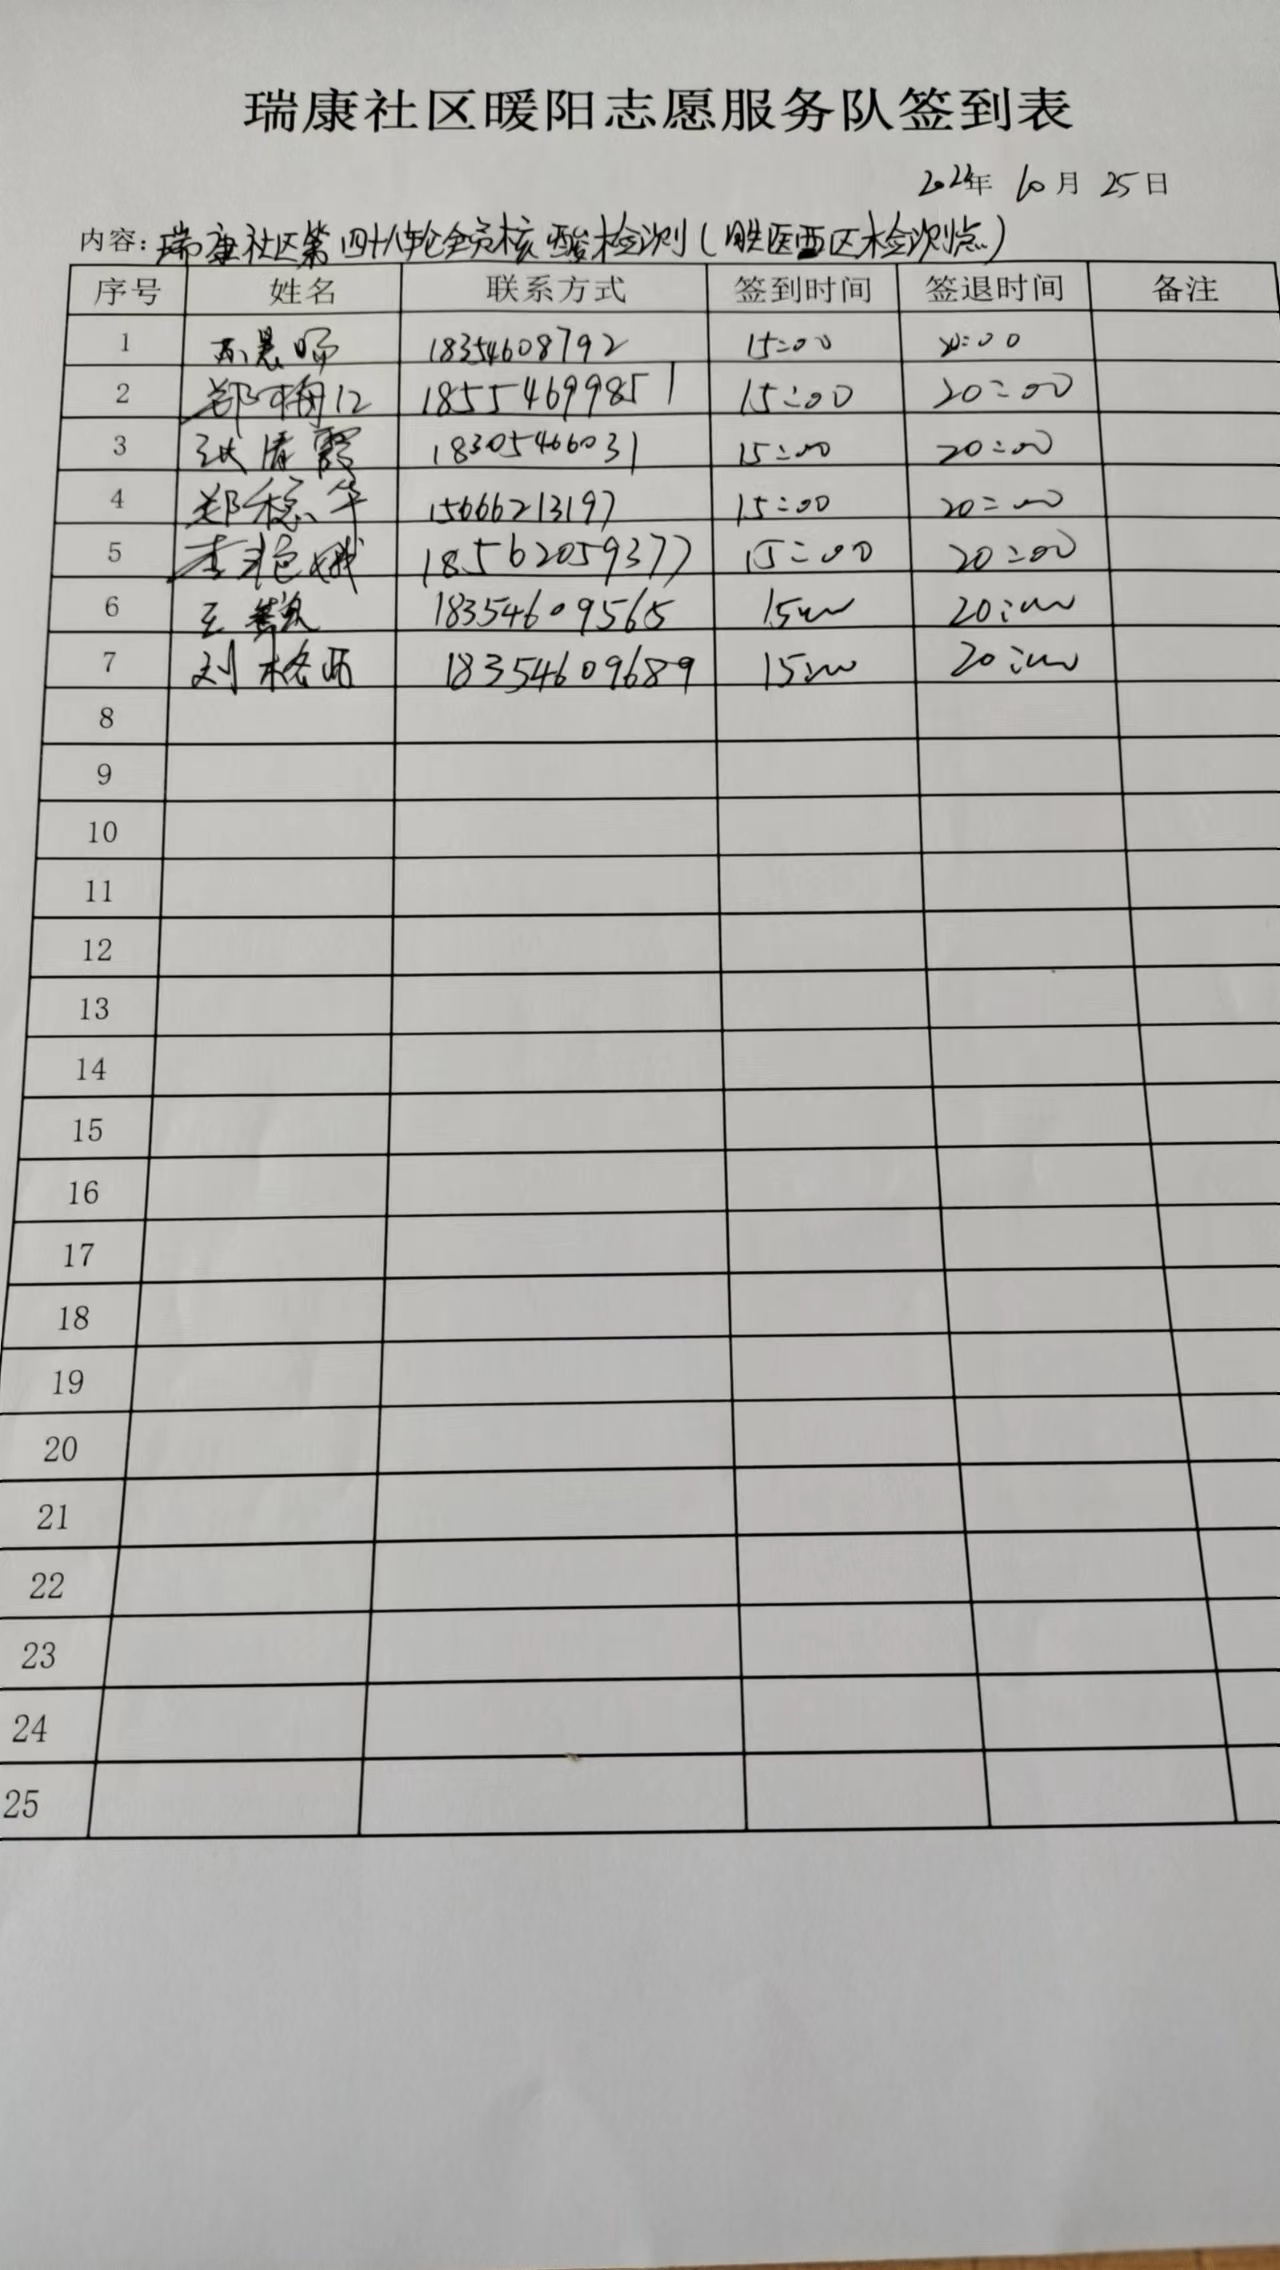 瑞康社区暖阳志愿服务队签到表
2022年 10月 25日
内容：瑞康社区第四十八轮全员核酸检测（胜医西区检测点）
序号 姓名 联系方式 签到时间 签退时间 备注
1 18354608792 15:00 20:00
2 郑梅江 18554699851 15:00 20:00
3 张清霞 18305466031 15:00 20:00
4 郑稳华 15666213197 15:00 20:00
5 李艳娥 18562059377 15:00 20:00
6 王 18354609565 15:00 20:00
7 刘格西 18354609689 15:00 20:00
8
9
10
11
12
13
14
15
16
17
18
19
20
21
22
23
24
25